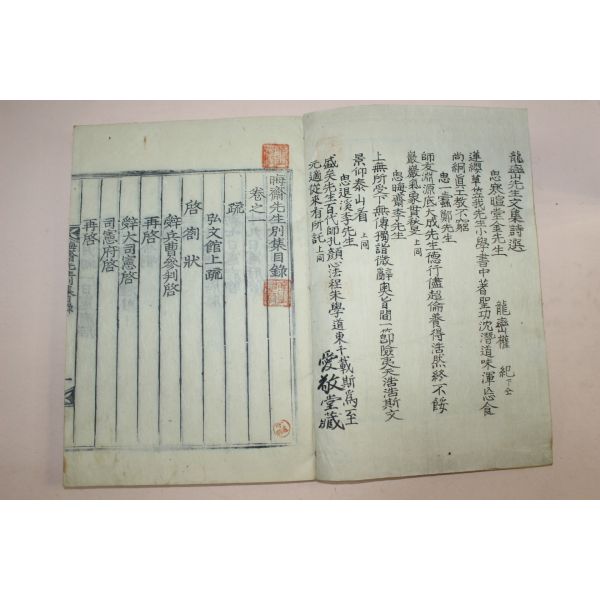 龍巒先生文集詩選
龍巒權 紀下仝
思寒暄堂金先生
蓬纓草笠我先生小學書中著聖功沈潛道味渾忘食
尚絅眞工教不窮
思一蠹鄭先生
師友淵源底大成先生德行儘超倫養得浩然終不餒
巖巖氣象貫秋旻上同
思晦齋李先生
上無所受下無傳獨詣微辭奧旨間一節險夷天浩浩斯文
景仰泰山看上同
思退溪李先生
盛矣先生百代師扎顔心法程朱學道東千載斯爲至
元適從來有所託上同
愛敬堂藏
晦齋先生別集目錄
卷之一
疏
弘文館上疏
啓 劄 狀
辭兵曹參判啓
再啓
辭大司憲啓
司憲府啓
再啓
晦齋先生別集目錄
一